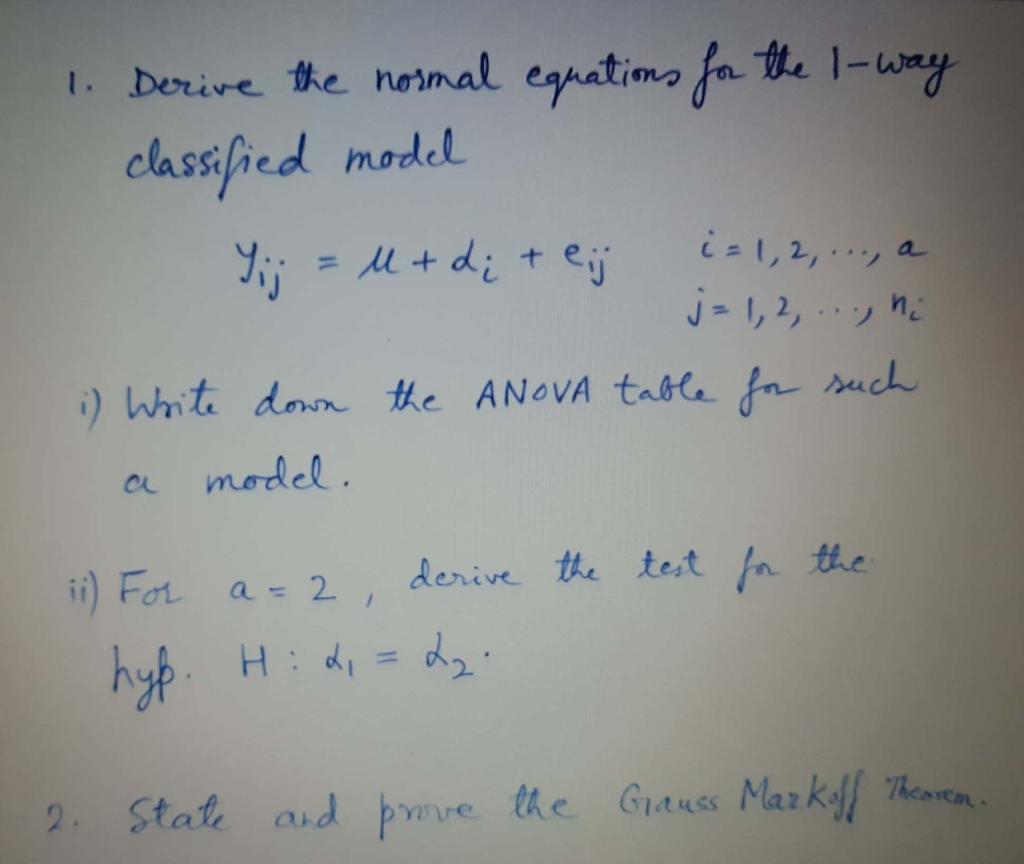 1. Derive the normal equations for the 1-way
classified model
yij = μ + αi + eij i = 1, 2, ..., a
j = 1, 2, ..., ni
i) Write down the ANOVA table for such
a model.
ii) For a = 2, derive the test for the
hyp. H : α1 = α2.
2. State and prove the Gauss Markoff Theorem.